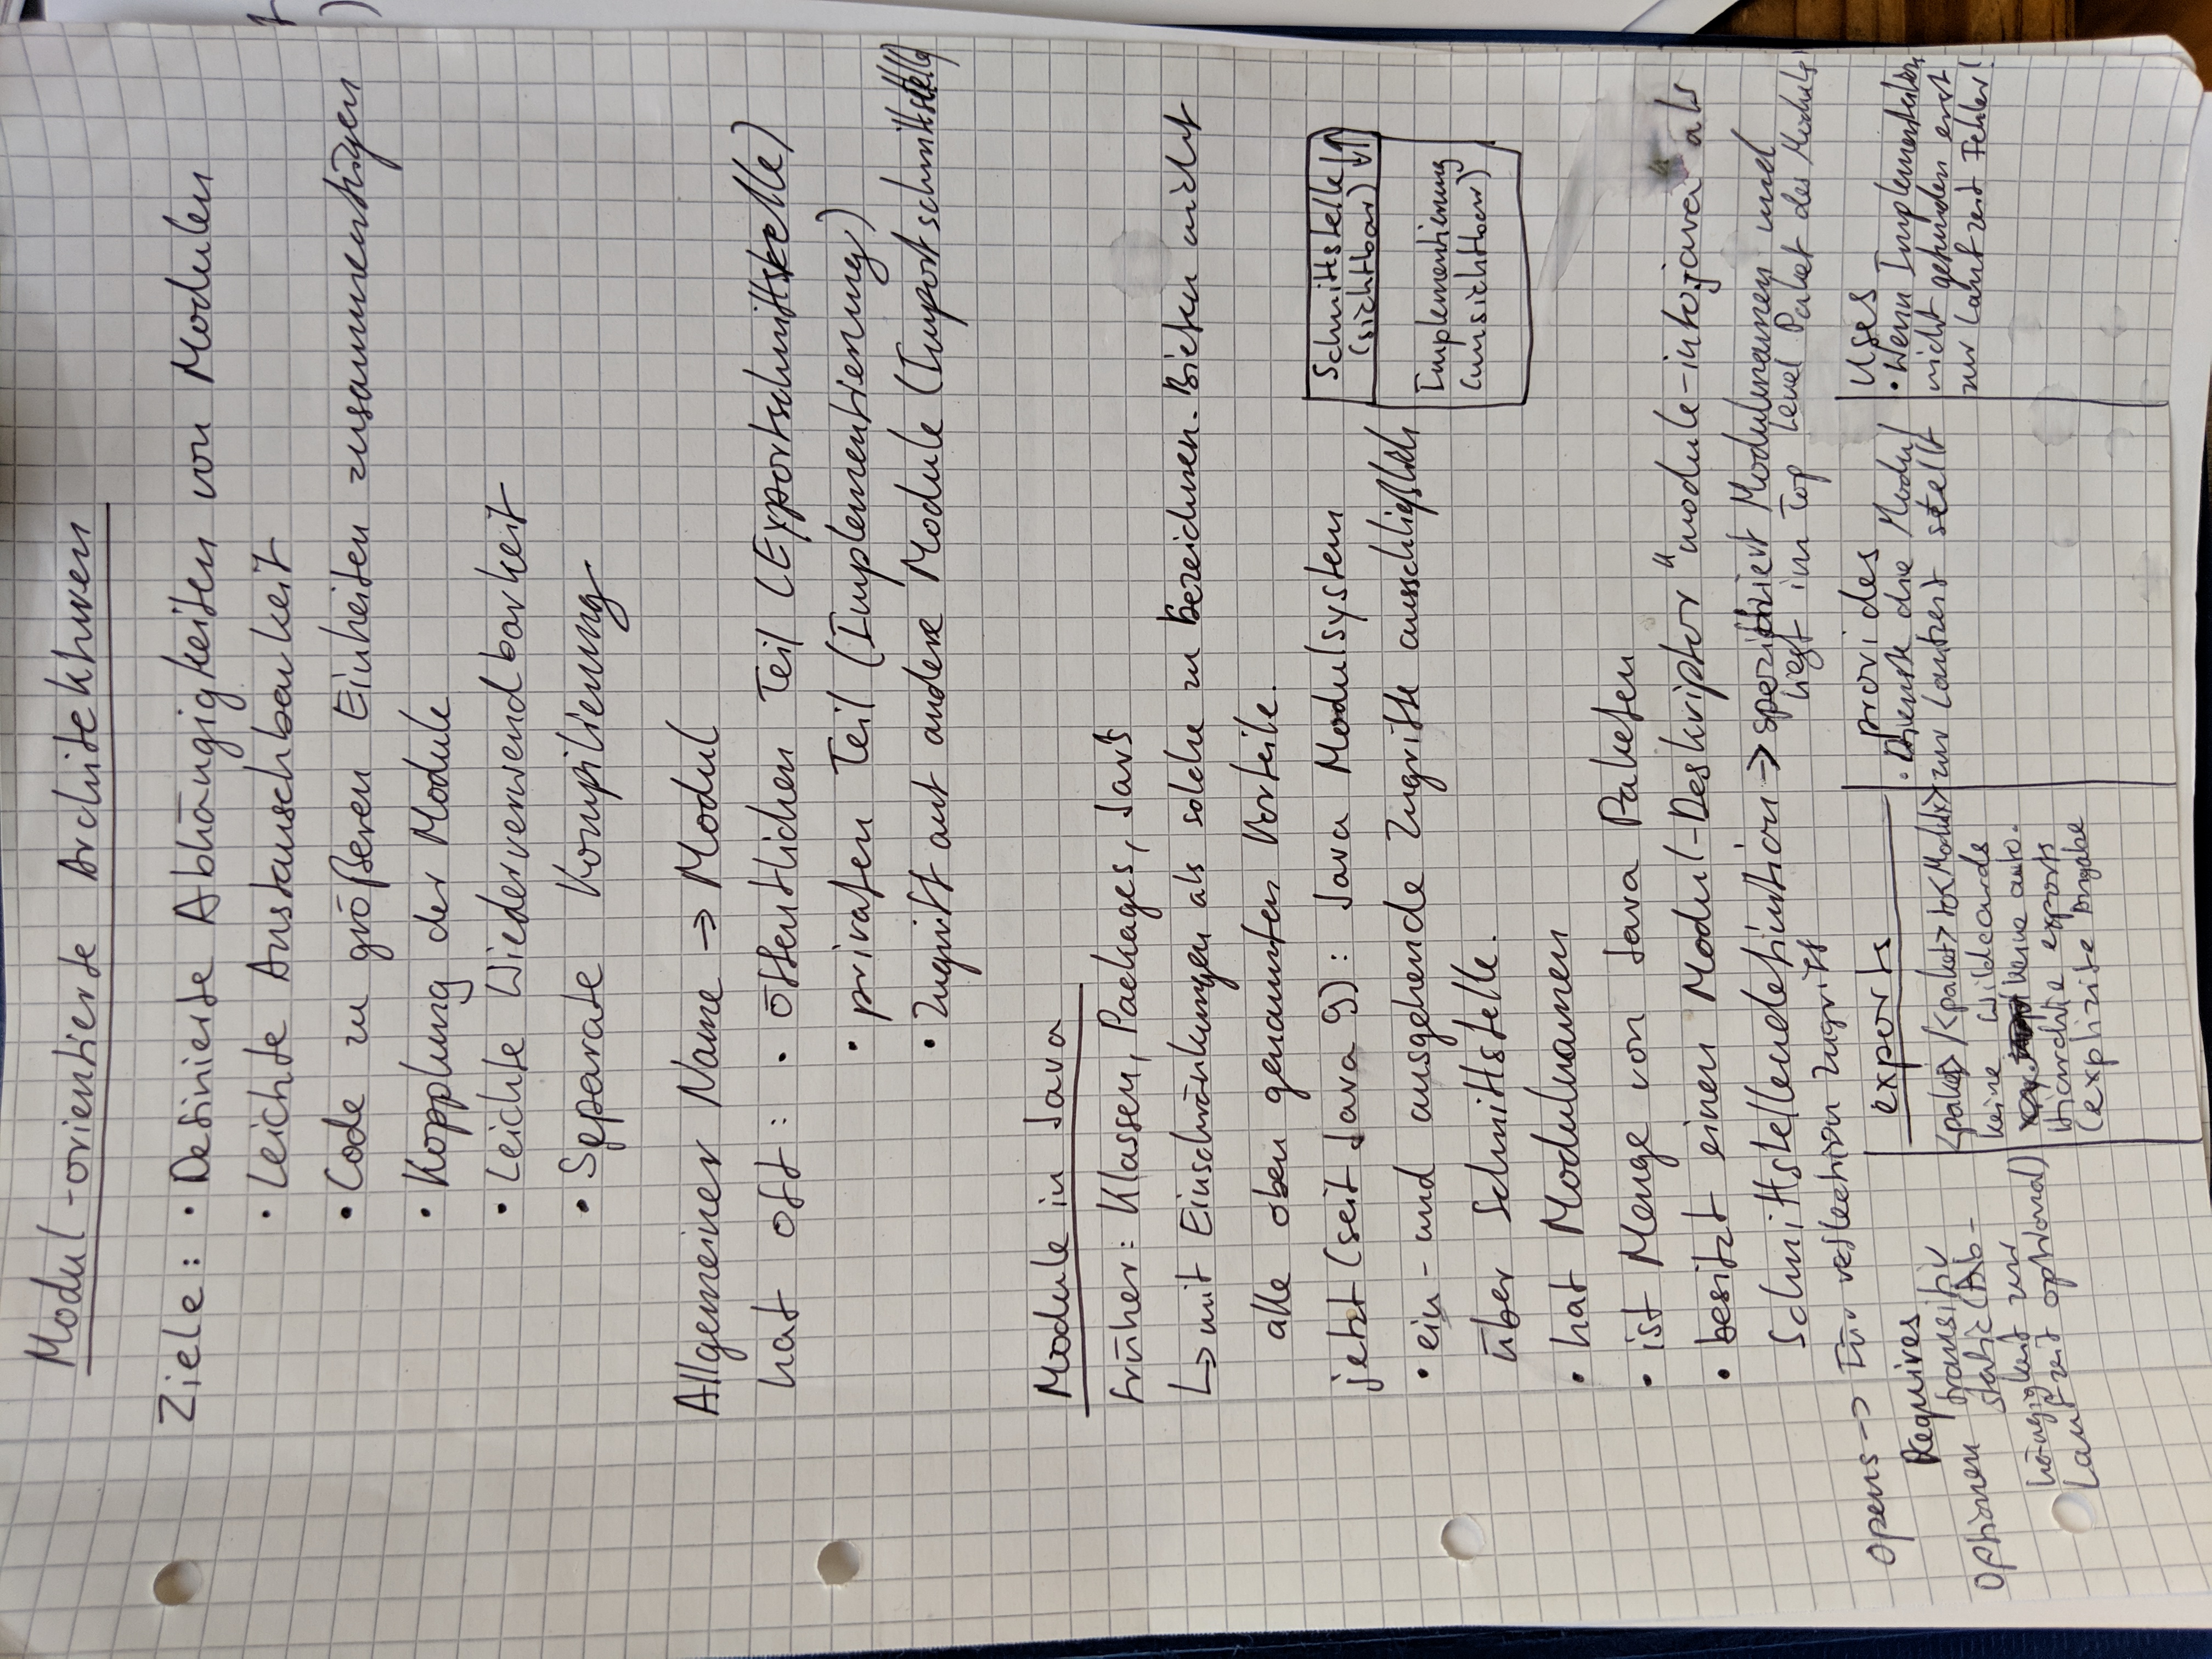 Modul-orientierte Architekturen
Ziele: • Definierte Abhängigkeiten von Modulen
• Leichte Austauschbarkeit
• Code zu größeren Einheiten zusammenfügen
• Kopplung der Module
• Leichte Wiederverwendbarkeit
• Separate Kompilierung
Allgemeiner Name → Modul
hat oft: • öffentlichen Teil (Exportschnittstelle)
• privaten Teil (Implementierung)
• Zugriff auf andere Module (Importschnittstelle)
Module in Java
früher: Klassen, Packages, Jars
↳ mit Einschränkungen als solche zu bezeichnen. Bieten nicht
alle oben genannten Vorteile.
jetzt (seit Java 9): Java Modulsystem
• ein- und ausgehende Zugriffe ausschließlich
über Schnittstelle.
Schnittstelle
(sichtbar)
Implementierung
(unsichtbar)
• hat Modulnamen
• ist Menge von Java Paketen
• besitzt einen Modul-Deskriptor "module-info.java" als
Schnittstellendefinition → spezifiziert Modulnamen und
liegt im Top Level Paket des Moduls
opens → Für reflection Zugriff
Requires
Optionen transitiv
static (Ab-
hängigkeit zur
Laufzeit optional)
exports
<paket> / <paket> to <Modul>
keine Wildcards
keine auto.
hierarchie exports
(explizite Angabe
provides
• Dienste die Modul
zur Laufzeit stellt
uses
• Wenn Implementation
nicht gefunden erst
zur Laufzeit Fehler!